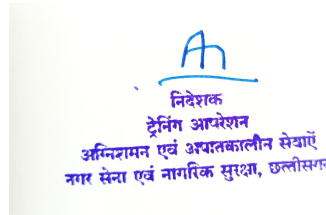 निदेशक
ट्रेनिंग आपरेशन
अग्निशमन एवं आपातकालीन सेवाऐं
नगर सेना एवं नागरिक सुरक्षा,